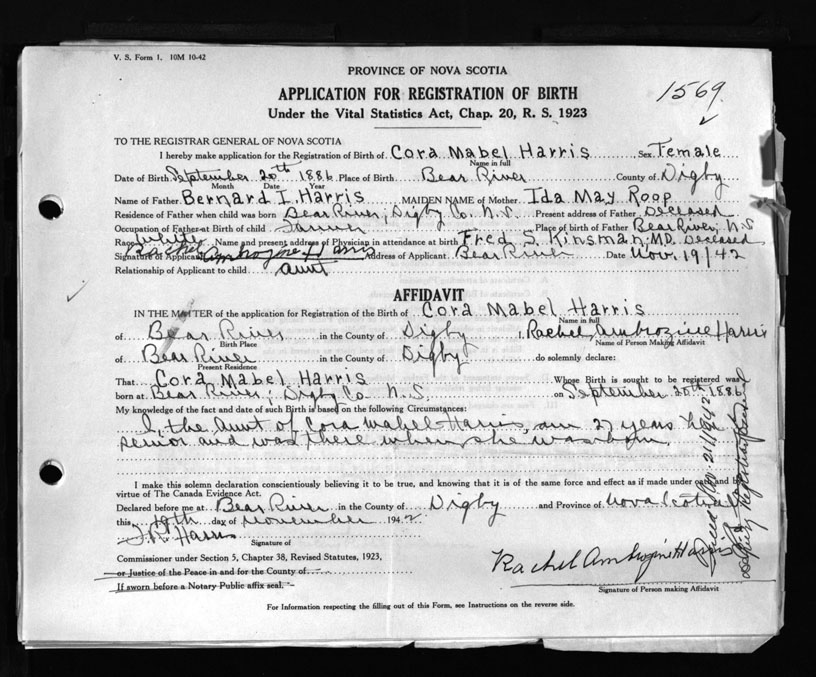 V. S. Form 1. 10M 10-42
PROVINCE OF NOVA SCOTIA
APPLICATION FOR REGISTRATION OF BIRTH
Under the Vital Statistics Act, Chap. 20, R. S. 1923
1569
TO THE REGISTRAR GENERAL OF NOVA SCOTIA
I hereby make application for the Registration of Birth of Cora Mabel Harris Sex Female
Name in full
Date of Birth September 20th 1886 Place of Birth Bear River County of Digby
Month Date Year
Name of Father Bernard I. Harris MAIDEN NAME of Mother Ida May Roop
Residence of Father when child was born Bear River, Digby Co. N.S. Present address of Father Deceased
Occupation of Father at Birth of child Farmer Place of birth of Father Bear River, N.S
Race White Name and present address of Physician in attendance at birth Fred S. Kinsman, M.D. Deceased
Signature of Applicant Rachel Ambrozine Harris Address of Applicant Bear River Date Nov. 19/42
Relationship of Applicant to child aunt
AFFIDAVIT
IN THE MATTER of the application for Registration of the Birth of Cora Mabel Harris
Name in full
of Bear River in the County of Digby I, Rachel Ambrozine Harris
Birth Place Name of Person Making Affidavit
of Bear River in the County of Digby do solemnly declare:
Present Residence
That Cora Mabel Harris Whose Birth is sought to be registered was
born at Bear River, Digby Co. N.S. on September 20th 1886
My knowledge of the fact and date of such Birth is based on the following Circumstances:
I, the Aunt of Cora Mabel Harris, am 27 years her
senior and was there when she was born.
I make this solemn declaration conscientiously believing it to be true, and knowing that it is of the same force and effect as if made under oath and by
virtue of The Canada Evidence Act.
Declared before me at Bear River in the County of Digby and Province of Nova Scotia
this 19th day of November 1942
Harris
Signature of
Commissioner under Section 5, Chapter 38, Revised Statutes, 1923,
or Justice of the Peace in and for the County of
If sworn before a Notary Public affix seal.
Rachel Ambrozine Harris
Signature of Person making Affidavit
For Information respecting the filling out of this Form, see Instructions on the reverse side.
Nov. 21/1942
Deputy Registrar General